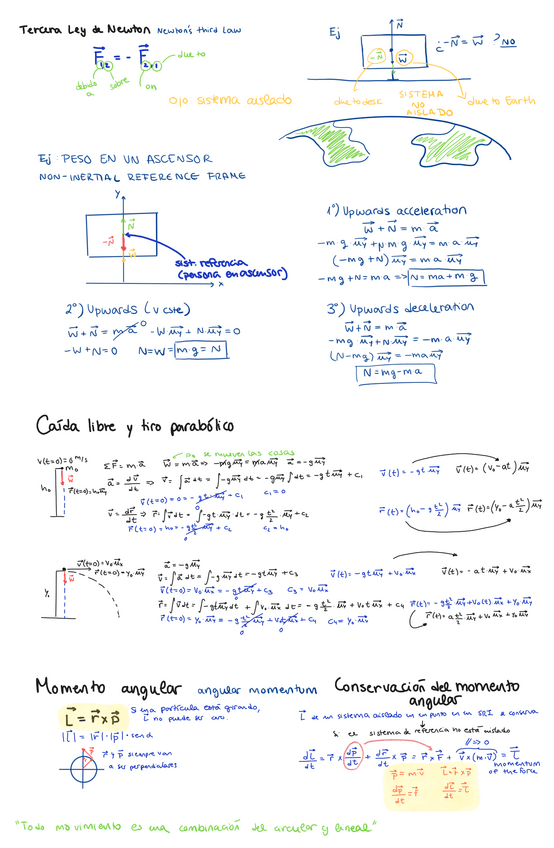 Tercera Ley de Newton Newton's third Law
F⃗₁,₂ = - F⃗₂,₁ due to
debido a sobre on
ojo sistema aislado
Ej
N⃗
-N⃗ W⃗
¿-N⃗ = W⃗ ? NO
SISTEMA
NO
AISLADO
due to desc
due to Earth
Ej: PESO EN UN ASCENSOR
NON-INERTIAL REFERENCE FRAME
y
N⃗
-N⃗
W⃗
x
sist. referencia
(persona en ascensor)
1º) Upwards acceleration
W⃗ + N⃗ = m a⃗
-m g u⃗y + N u⃗y = m a u⃗y
(-mg + N) u⃗y = m a u⃗y
-mg + N = m a => N = ma + m g
2º) Upwards (v cste)
W⃗ + N⃗ = m a⃗ 0 -W u⃗y + N u⃗y = 0
-W + N = 0 N = W = m g = N
3º) Upwards deceleration
W⃗ + N⃗ = m a⃗
-mg u⃗y + N u⃗y = -m a u⃗y
(N-mg) u⃗y = -ma u⃗y
N = mg - ma
Caída libre y tiro parabólico
as se mueven las cosas
v(t=0)=0 m/s
m₀
W⃗
h₀
r⃗(t=0)=h₀u⃗y
ΣF⃗ = m a⃗ W⃗ = m a⃗ => -mg u⃗y = m a u⃗y a⃗ = -g u⃗y
a⃗ = dv⃗/dt => v⃗ = ∫a⃗ dt = ∫-g u⃗y dt = -g u⃗y ∫dt = -g t u⃗y + c₁
v⃗(t=0) = 0 = -g t u⃗y + c₁ c₁ = 0
v⃗ = dr⃗/dt => r⃗ = ∫v⃗ dt = ∫-g t u⃗y dt = -g t²/2 u⃗y + c₂
r⃗(t=0) = h₀ = -g t²/2 u⃗y + c₂ c₂ = h₀
v⃗(t) = -g t u⃗y v⃗(t) = (v₀ - at) u⃗y
r⃗(t) = (h₀ - g t²/2) u⃗y r⃗(t) = (v₀ - a t²/2) u⃗y
v⃗(t=0) = v₀ u⃗x
r⃗(t=0) = y₀ u⃗y
W⃗
y₀
a⃗ = -g u⃗y
v⃗ = ∫a⃗ dt = ∫-g u⃗y dt = -g t u⃗y + c₃
v⃗(t=0) = v₀ u⃗x = -g t u⃗y + c₃ c₃ = v₀ u⃗x
r⃗ = ∫v⃗ dt = ∫-g t u⃗y dt + ∫v₀ u⃗x dt = -g t²/2 u⃗y + v₀ t u⃗x + c₄
r⃗(t=0) = y₀ u⃗y = -g t²/2 u⃗y + v₀ t u⃗x + c₄ c₄ = y₀ u⃗y
v⃗(t) = -g t u⃗y + v₀ u⃗x v⃗(t) = -a t u⃗y + v₀ u⃗x
r⃗(t) = -g t²/2 u⃗y + v₀(t) u⃗x + y₀ u⃗y
r⃗(t) = a t²/2 u⃗y + v₀ u⃗x + y₀ u⃗y
Momento angular angular momentum
L⃗ = r⃗ x p⃗
Si una partícula está girando,
L⃗ no puede ser cero.
|L⃗| = |r⃗| · |p⃗| · sen α
r⃗ y p⃗ siempre van
a ser perpendiculares
Conservación del momento
angular
L⃗ de un sistema aislado en un punto en un SRI se conserva
Si el sistema de referencia no está aislado
dL⃗/dt = r⃗ x dp⃗/dt + dr⃗/dt x p⃗ = r⃗ x F⃗ + v⃗ x (m·v⃗) = τ⃗
// => 0
momentum
of the force
p⃗ = m v⃗ L⃗ = r⃗ x p⃗
dp⃗/dt = F⃗ dL⃗/dt = τ⃗
"Todo movimiento es una combinación del circular y lineal"